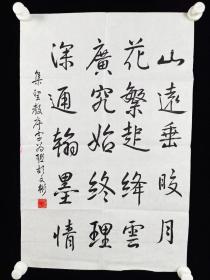 山遠垂皎月
花繁起绛雲
廣究始終理
深通翰墨情
集聖教序字為聯